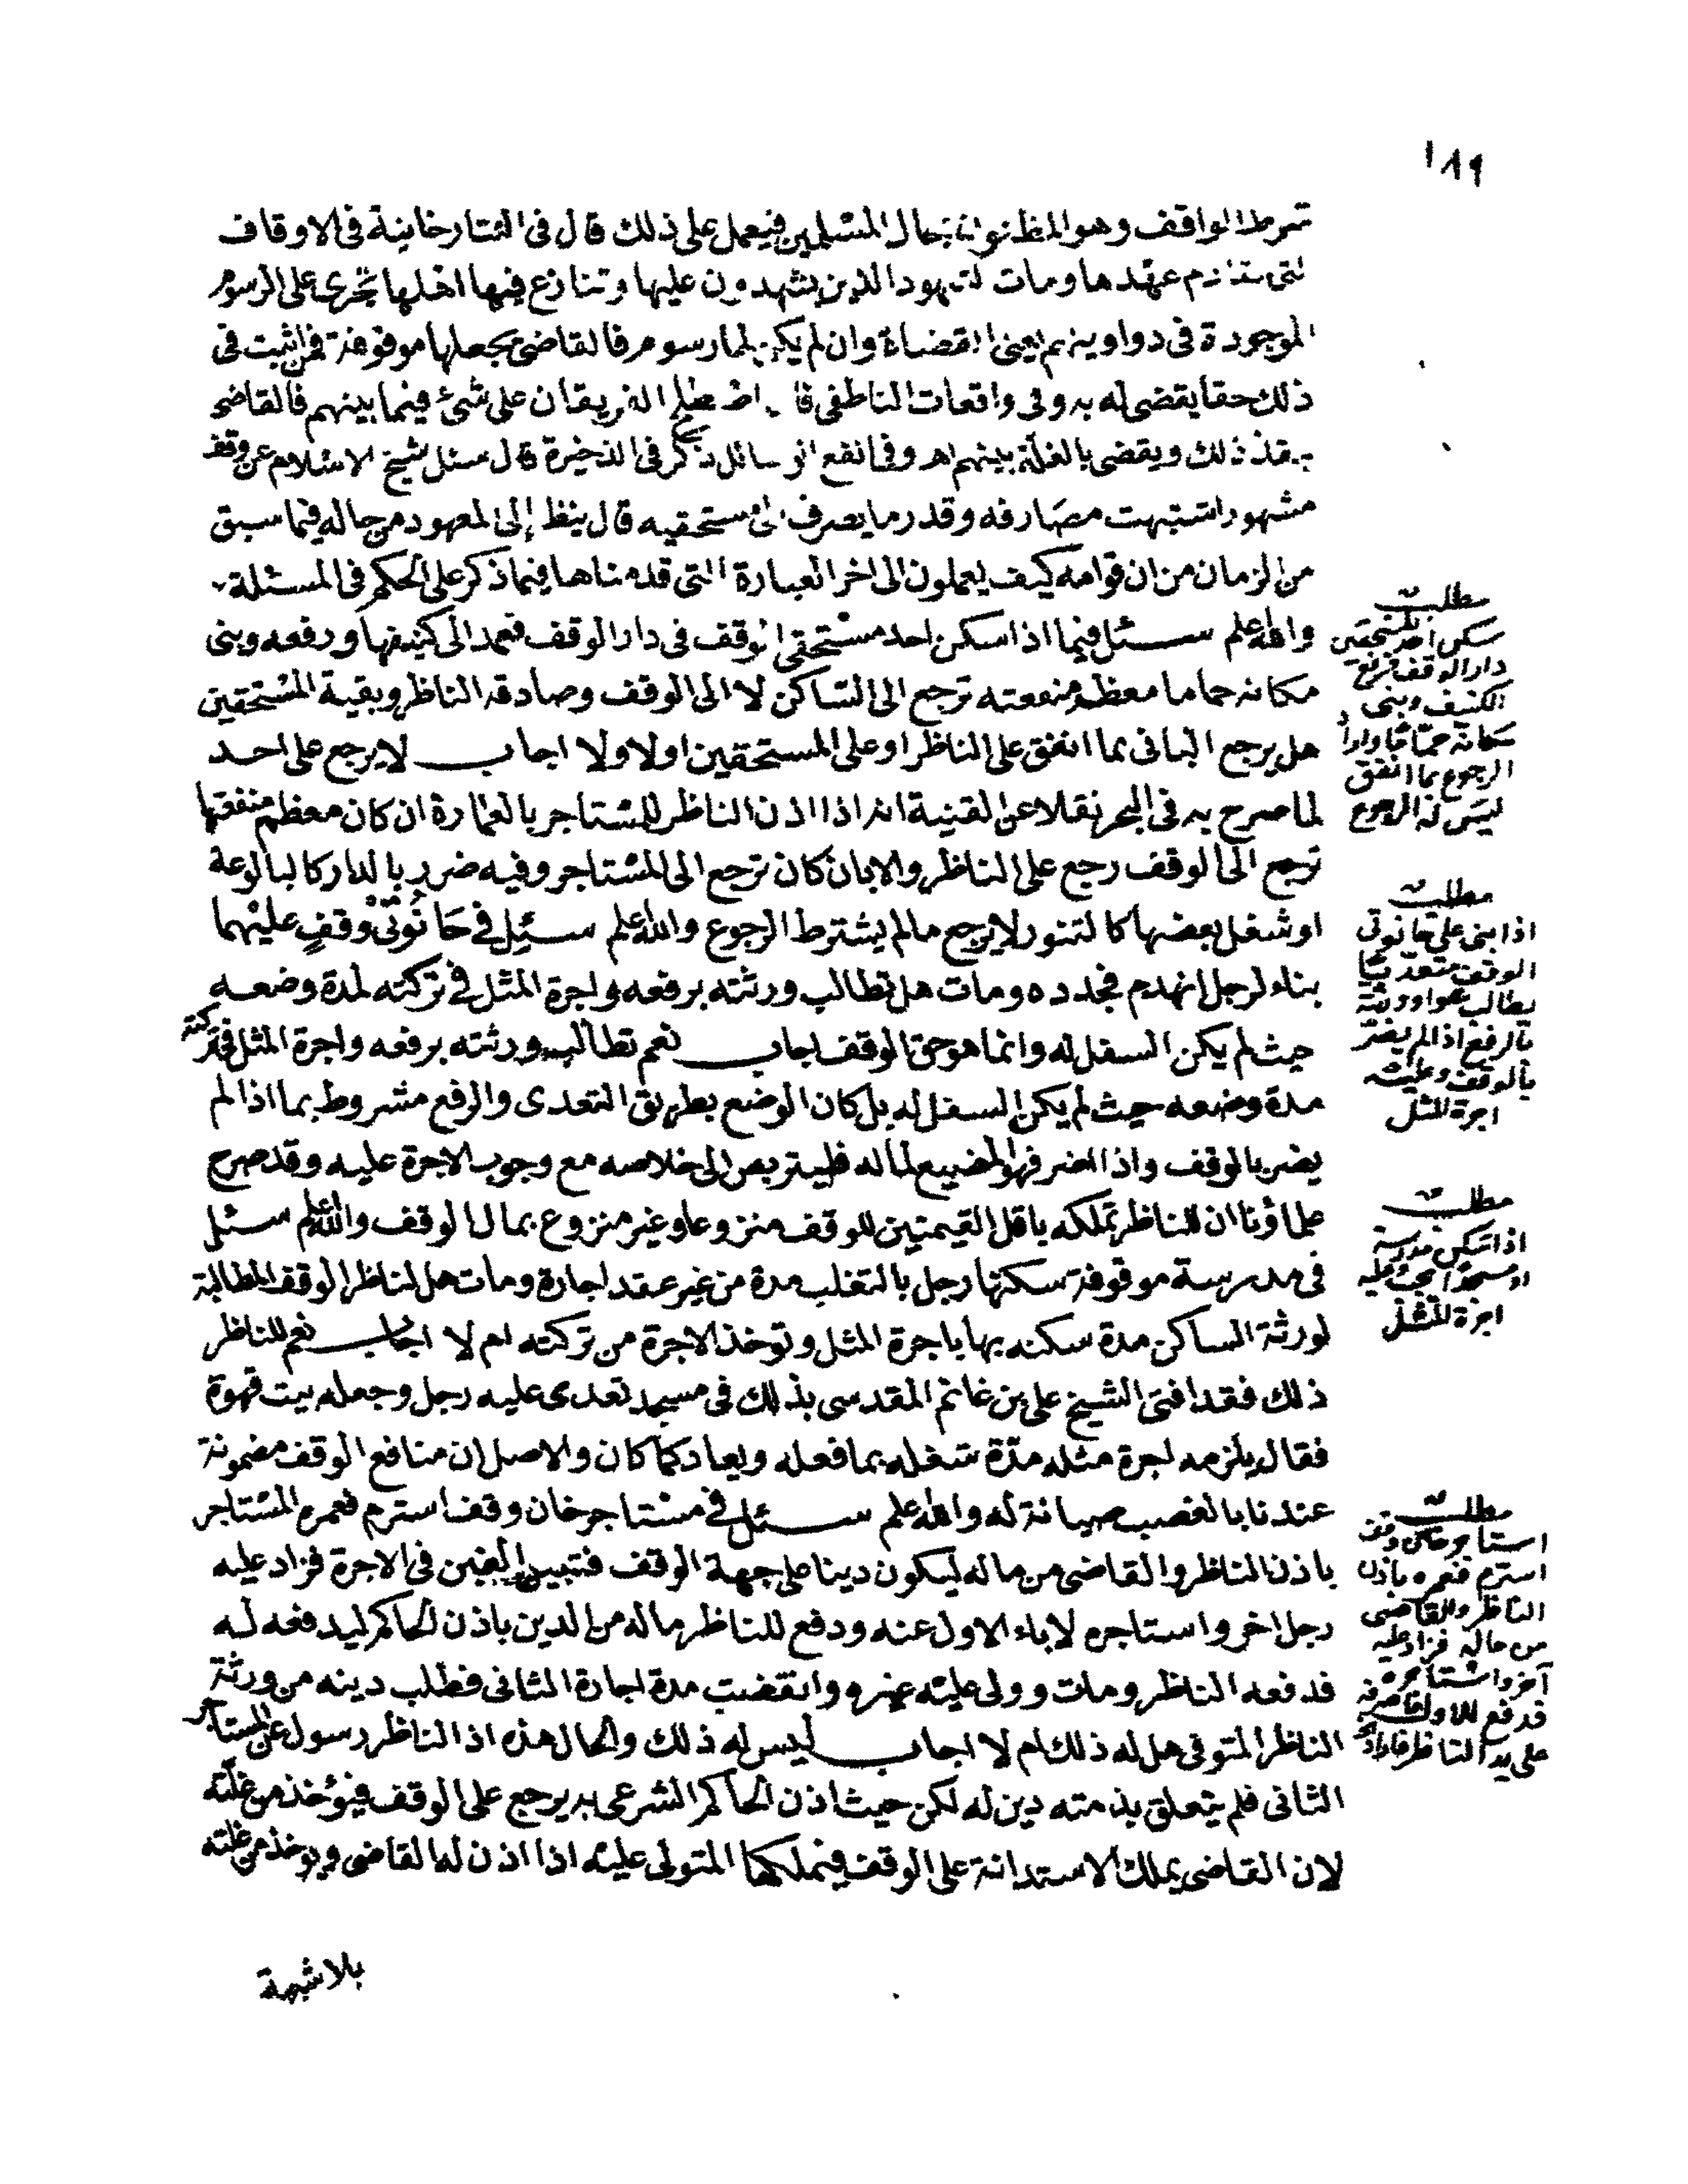 ١٨٩
شرط الواقف وهو المظنون بحال المسلمين فيعمل على ذلك قال فى التتارخانية فى الاوقاف
التى تقادم عهدها ومات الشهود الذين يشهدون عليها وتنازع فيها اهلها تجرى على الرسوم
الموجودة فى دواوينهم يعنى القضاة وان لم يكن لها رسوم فالقاضى يجعلها موقوفة فمن اثبت فى
ذلك حقا يقضى له به وفى واقعات الناطفى فان اصطلح الفريقان على شئ فيما بينهم فالقاضى
ينفذ ذلك ويقضى بالغلة بينهم اهـ وفى انفع الوسائل ذكر فى الذخيرة قال سئل شيخ الاسلام عن وقف
مشهور اشتبهت مصارفه وقدر ما يصرف الى مستحقيه قال ينظر إلى المعهود من حاله فيما سبق
من الزمان من ان قوامه كيف يعملون الى اخر العبارة التى قدمناها فيما ذكر على الحكم فى المسئلة
والله اعلم سئل فيما اذا سكن احد مستحقى الوقف فى دار الوقف فعمد الى كنيفها ورفعه وبنى
مكانه حماما معظم منفعته ترجع الى الساكن لا الى الوقف وصادقه الناظر وبقية المستحقين
هل يرجع البانى بما انفق على الناظر او على المستحقين اولا ولا اجاب لا يرجع على احد
لما صرح به فى البحر نقلا عن القنية انه اذا اذن الناظر للمستاجر بالعمارة ان كان معظم منفعتها
ترجع الى الوقف رجع على الناظر والا بان كان ترجع الى المستاجر وفيه ضرر بالدار كالبالوعة
او شغل بعضها كالتنور لا يرجع مالم يشترط الرجوع والله اعلم سئل فى حانوتى وقف عليهما
بناء لرجل انهدم فجدده ومات هل تطالب ورثته برفعه واجرة المثل فى تركته لمدة وضعه
حيث لم يكن السفل له وانما هو حق الوقف اجاب نعم تطالب ورثته برفعه واجرة المثل فى تركته
مدة وضعه حيث لم يكن السفل له بل كان الوضع بطريق التعدى والرفع مشروط بما اذا لم
يضر بالوقف واذا اضر فهو المضيع لماله فليتربص الى خلاصه مع وجوب الاجرة عليه وقد صرح
علماؤنا ان للناظر تملكه باقل القيمتين للوقف منزوعا وغير منزوع بمال الوقف والله اعلم سئل
فى مدرسة موقوفة سكنها رجل بالتغلب مدة من غير عقد اجارة ومات هل لناظر الوقف المطالبة
لورثة الساكن مدة سكنه بها باجرة المثل وتوخذ الاجرة من تركته ام لا اجاب نعم للناظر
ذلك فقد افتى الشيخ على بن غانم المقدسى بذلك فى مسجد تعدى عليه رجل وجعله بيت قهوة
فقال يلزمه اجرة مثله مدة شغله بما فعله ويعاد كما كان والاصل ان منافع الوقف مضمونة
عندنا بالغصب صيانة له والله اعلم سئل فى مستاجر خان وقف استرم فعمره المستاجر
باذن الناظر والقاضى من ماله ليكون دينا على جهة الوقف فتبين الغبن فى الاجرة فزاد عليه
رجل اخر واستاجره لاباء الاول عنه ودفع للناظر ماله من الدين باذن الحاكم ليدفعه له
فدفعه الناظر ومات وولى عليه غيره وانقضت مدة اجارة الثانى فطلب دينه من ورثة
الناظر المتوفى هل له ذلك ام لا اجاب ليس له ذلك والحال هذه اذ الناظر رسول عن المستاجر
الثانى فلم يتعلق بذمته دين له لكن حيث اذن الحاكم الشرعى به يرجع على الوقف فيؤخذ من غلته
لان القاضى يملك الاستدانة على الوقف فيملكها المتولى عليه اذا اذن له القاضى ويوخذ من غلته
بلا شبهة
مطلب
سكن احد المستحقين
دار الوقف فرفع
الكنيف وبنى
مكانه حماما واراد
الرجوع بما انفق
ليس له الرجوع
مطلب
اذا بنى على حانوتى
الوقف متعديا
يطالب هو او ورثته
بالرفع اذا لم يضر
بالوقف وعليه
اجرة المثل
مطلب
اذا سكن مدرسة
او مسجدا يجب عليه
اجرة المثل
مطلب
استاجر خان وقف
استرم فعمره باذن
الناظر والقاضى
من ماله فزاد عليه
آخر واستاجره
قد دفع للاول ما صرفه
على يد الناظر فاراد